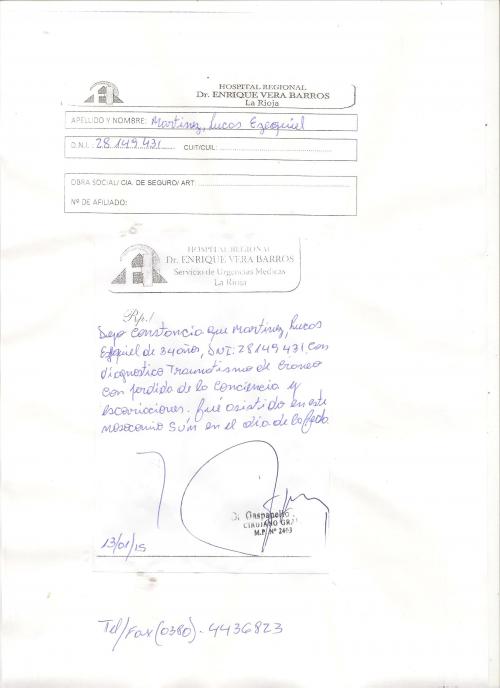 HOSPITAL REGIONAL
Dr. ENRIQUE VERA BARROS
La Rioja
APELLIDO Y NOMBRE: Martinez, Lucas Ezequiel
D.N.I.: 28.149.431 CUIT/CUIL:
OBRA SOCIAL/ CIA. DE SEGURO/ ART:
Nº DE AFILIADO:
HOSPITAL REGIONAL
Dr. ENRIQUE VERA BARROS
Servicio de Urgencias Medicas
La Rioja
Rp./
Dejo constancia que Martinez, Lucas
Ezequiel de 34 años, DNI: 28149431 con
diagnostico Traumatismo de craneo
con perdida de la conciencia y
escoriaciones. fué asistido en este
nosocomio en el dia de la fecha
Dr. Gaspanello
CIRUJANO GRAL
M.P. Nº 2463
13/01/15
Tel/Fax (0380) - 4436823